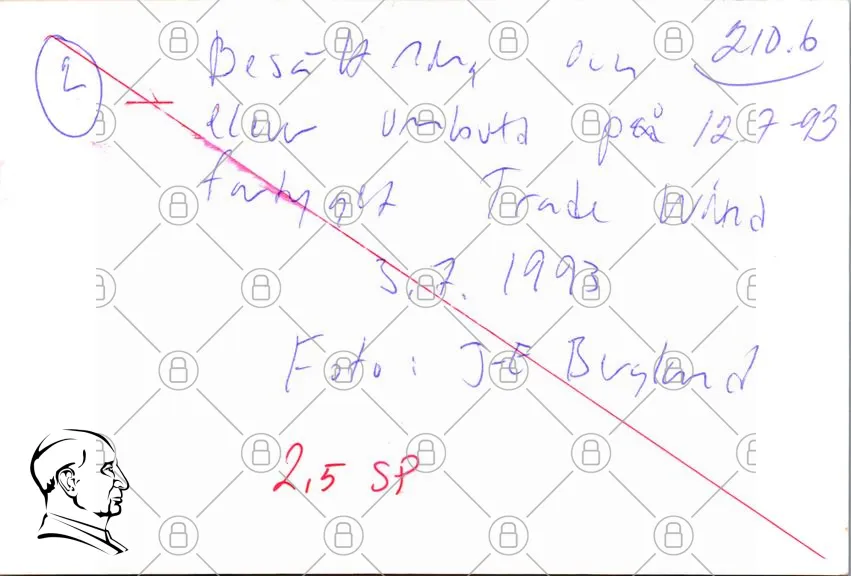 2
210.6
Besättning och
elever ombord på 12.7-93
fartyget Trade Wind
3.7. 1993
Foto: J-E Berglund
2,5 SP